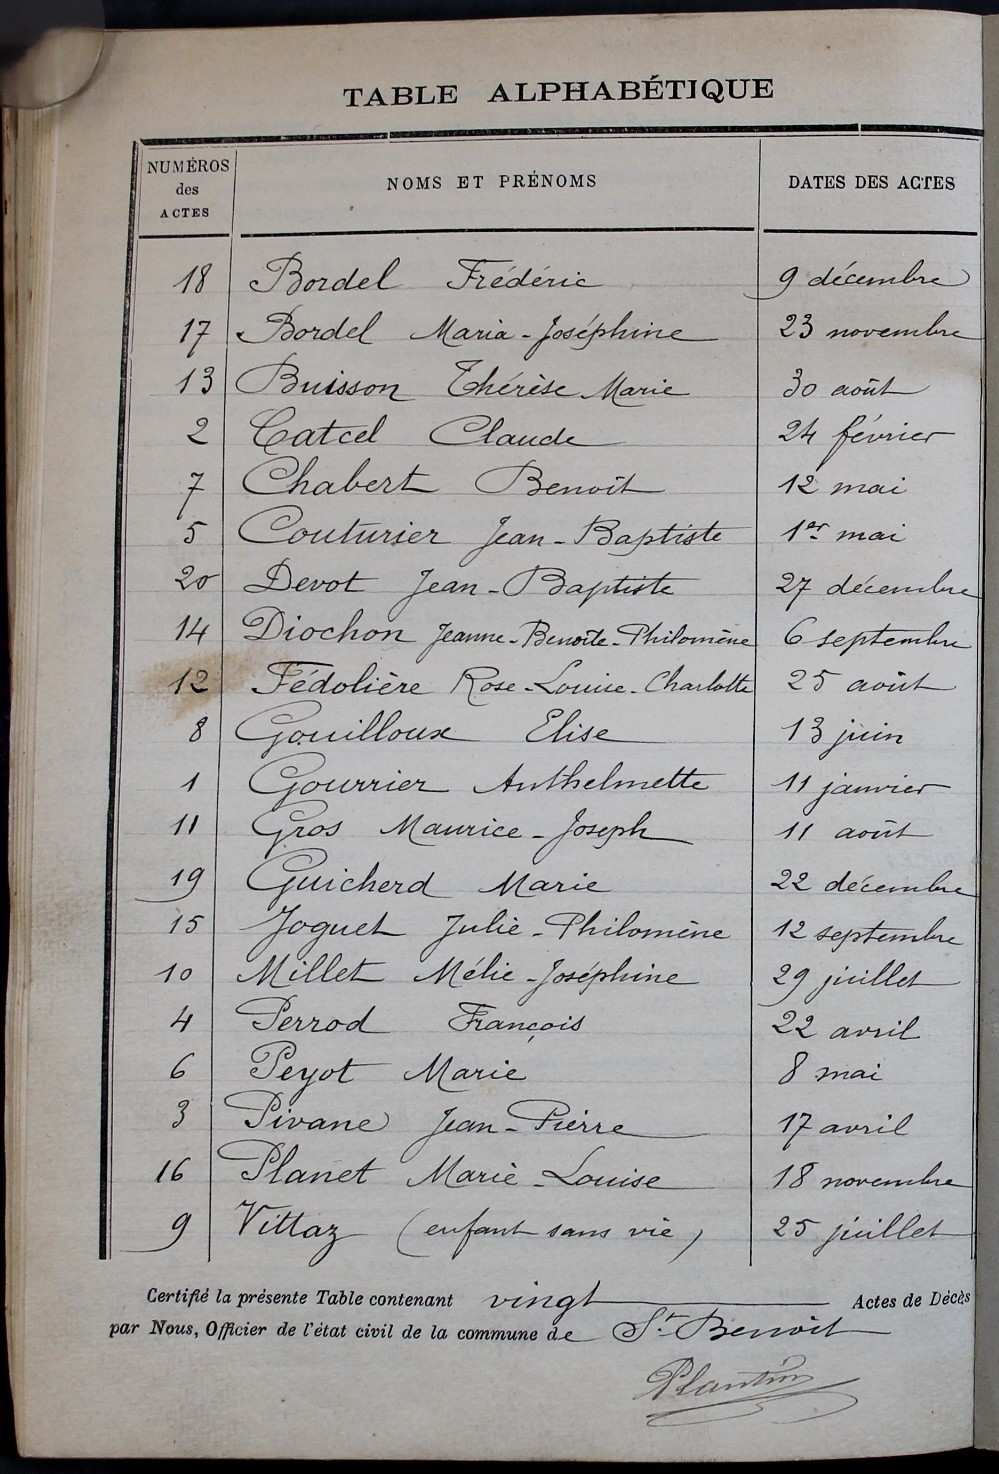 TABLE ALPHABÉTIQUE
NUMÉROS des ACTES NOMS ET PRÉNOMS DATES DES ACTES
18 Bordel Frédéric 9 décembre
17 Bordel Maria-Joséphine 23 novembre
13 Buisson Thérèse Marie 30 août
2 Catcel Claude 24 février
7 Chabert Benoît 12 mai
5 Couturier Jean-Baptiste 1er mai
20 Devot Jean-Baptiste 27 décembre
14 Diochon Jeanne-Benoîte-Philomène 6 septembre
12 Fédolière Rose-Louise-Charlotte 25 août
8 Gouilloux Elise 13 juin
1 Gourrier Anthelmette 11 janvier
11 Gros Maurice-Joseph 11 août
19 Guicherd Marie 22 décembre
15 Joguet Julie-Philomène 12 septembre
10 Millet Mélie-Joséphine 29 juillet
4 Perrod François 22 avril
6 Peyot Marie 8 mai
3 Pivane Jean-Pierre 17 avril
16 Planet Marie-Louise 18 novembre
9 Vittaz (enfant sans vie) 25 juillet
Certifié la présente Table contenant vingt Actes de Décès
par Nous, Officier de l'état civil de la commune de St-Benoit
Plantin